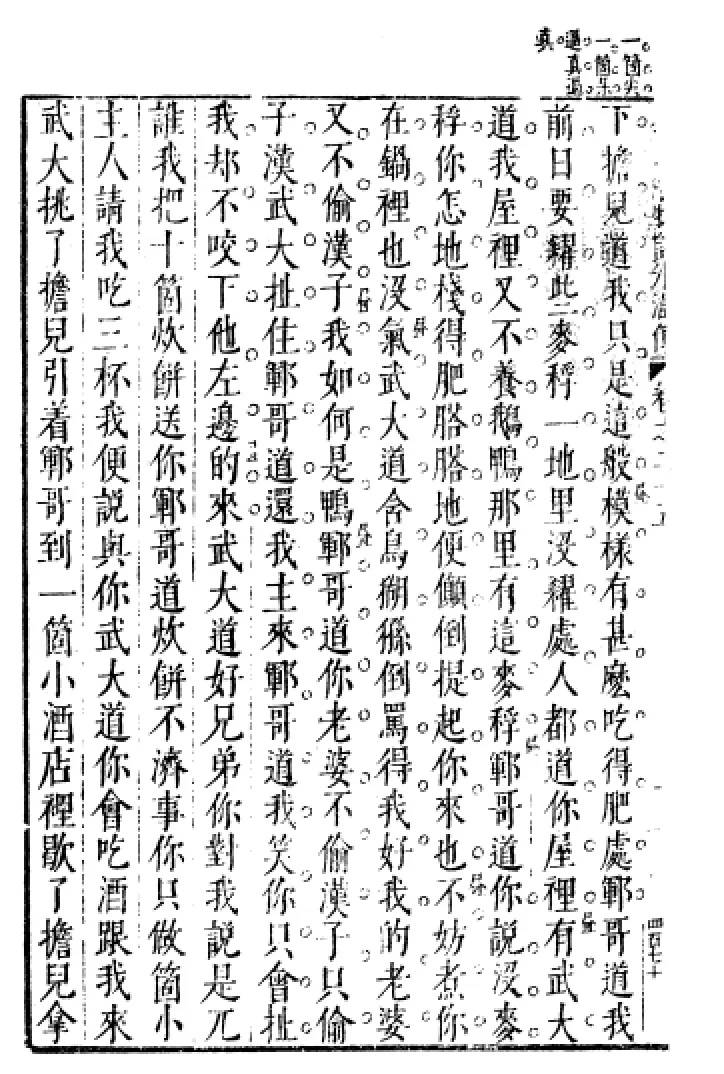 一箇尖
一箇
逼真逼
真
四百七十
下擔兒道我只是這般模樣有甚麼吃得肥處鄆哥道我
前日要糴些麥稃一地里没糴處人都道你屋裡有武大
道我屋裡又不養鵝鴨那里有這麥稃鄆哥道你說没麥
稃你怎地棧得肥胳胳地便顛倒提起你來也不妨煮你
在鍋裡也没氣武大道含鳥猢猻倒罵得我好我的老婆
又不偷漢子我如何是鴨鄆哥道你老婆不偷漢子只偷
子漢武大扯住鄆哥道還我主來鄆哥道我笑你只會扯
我却不咬下他左邊的來武大道好兄弟你對我說是兀
誰我把十箇炊餅送你鄆哥道炊餅不濟事你只做箇小
主人請我吃三杯我便說與你武大道你會吃酒跟我來
武大挑了擔兒引着鄆哥到一箇小酒店裡歇了擔兒拿